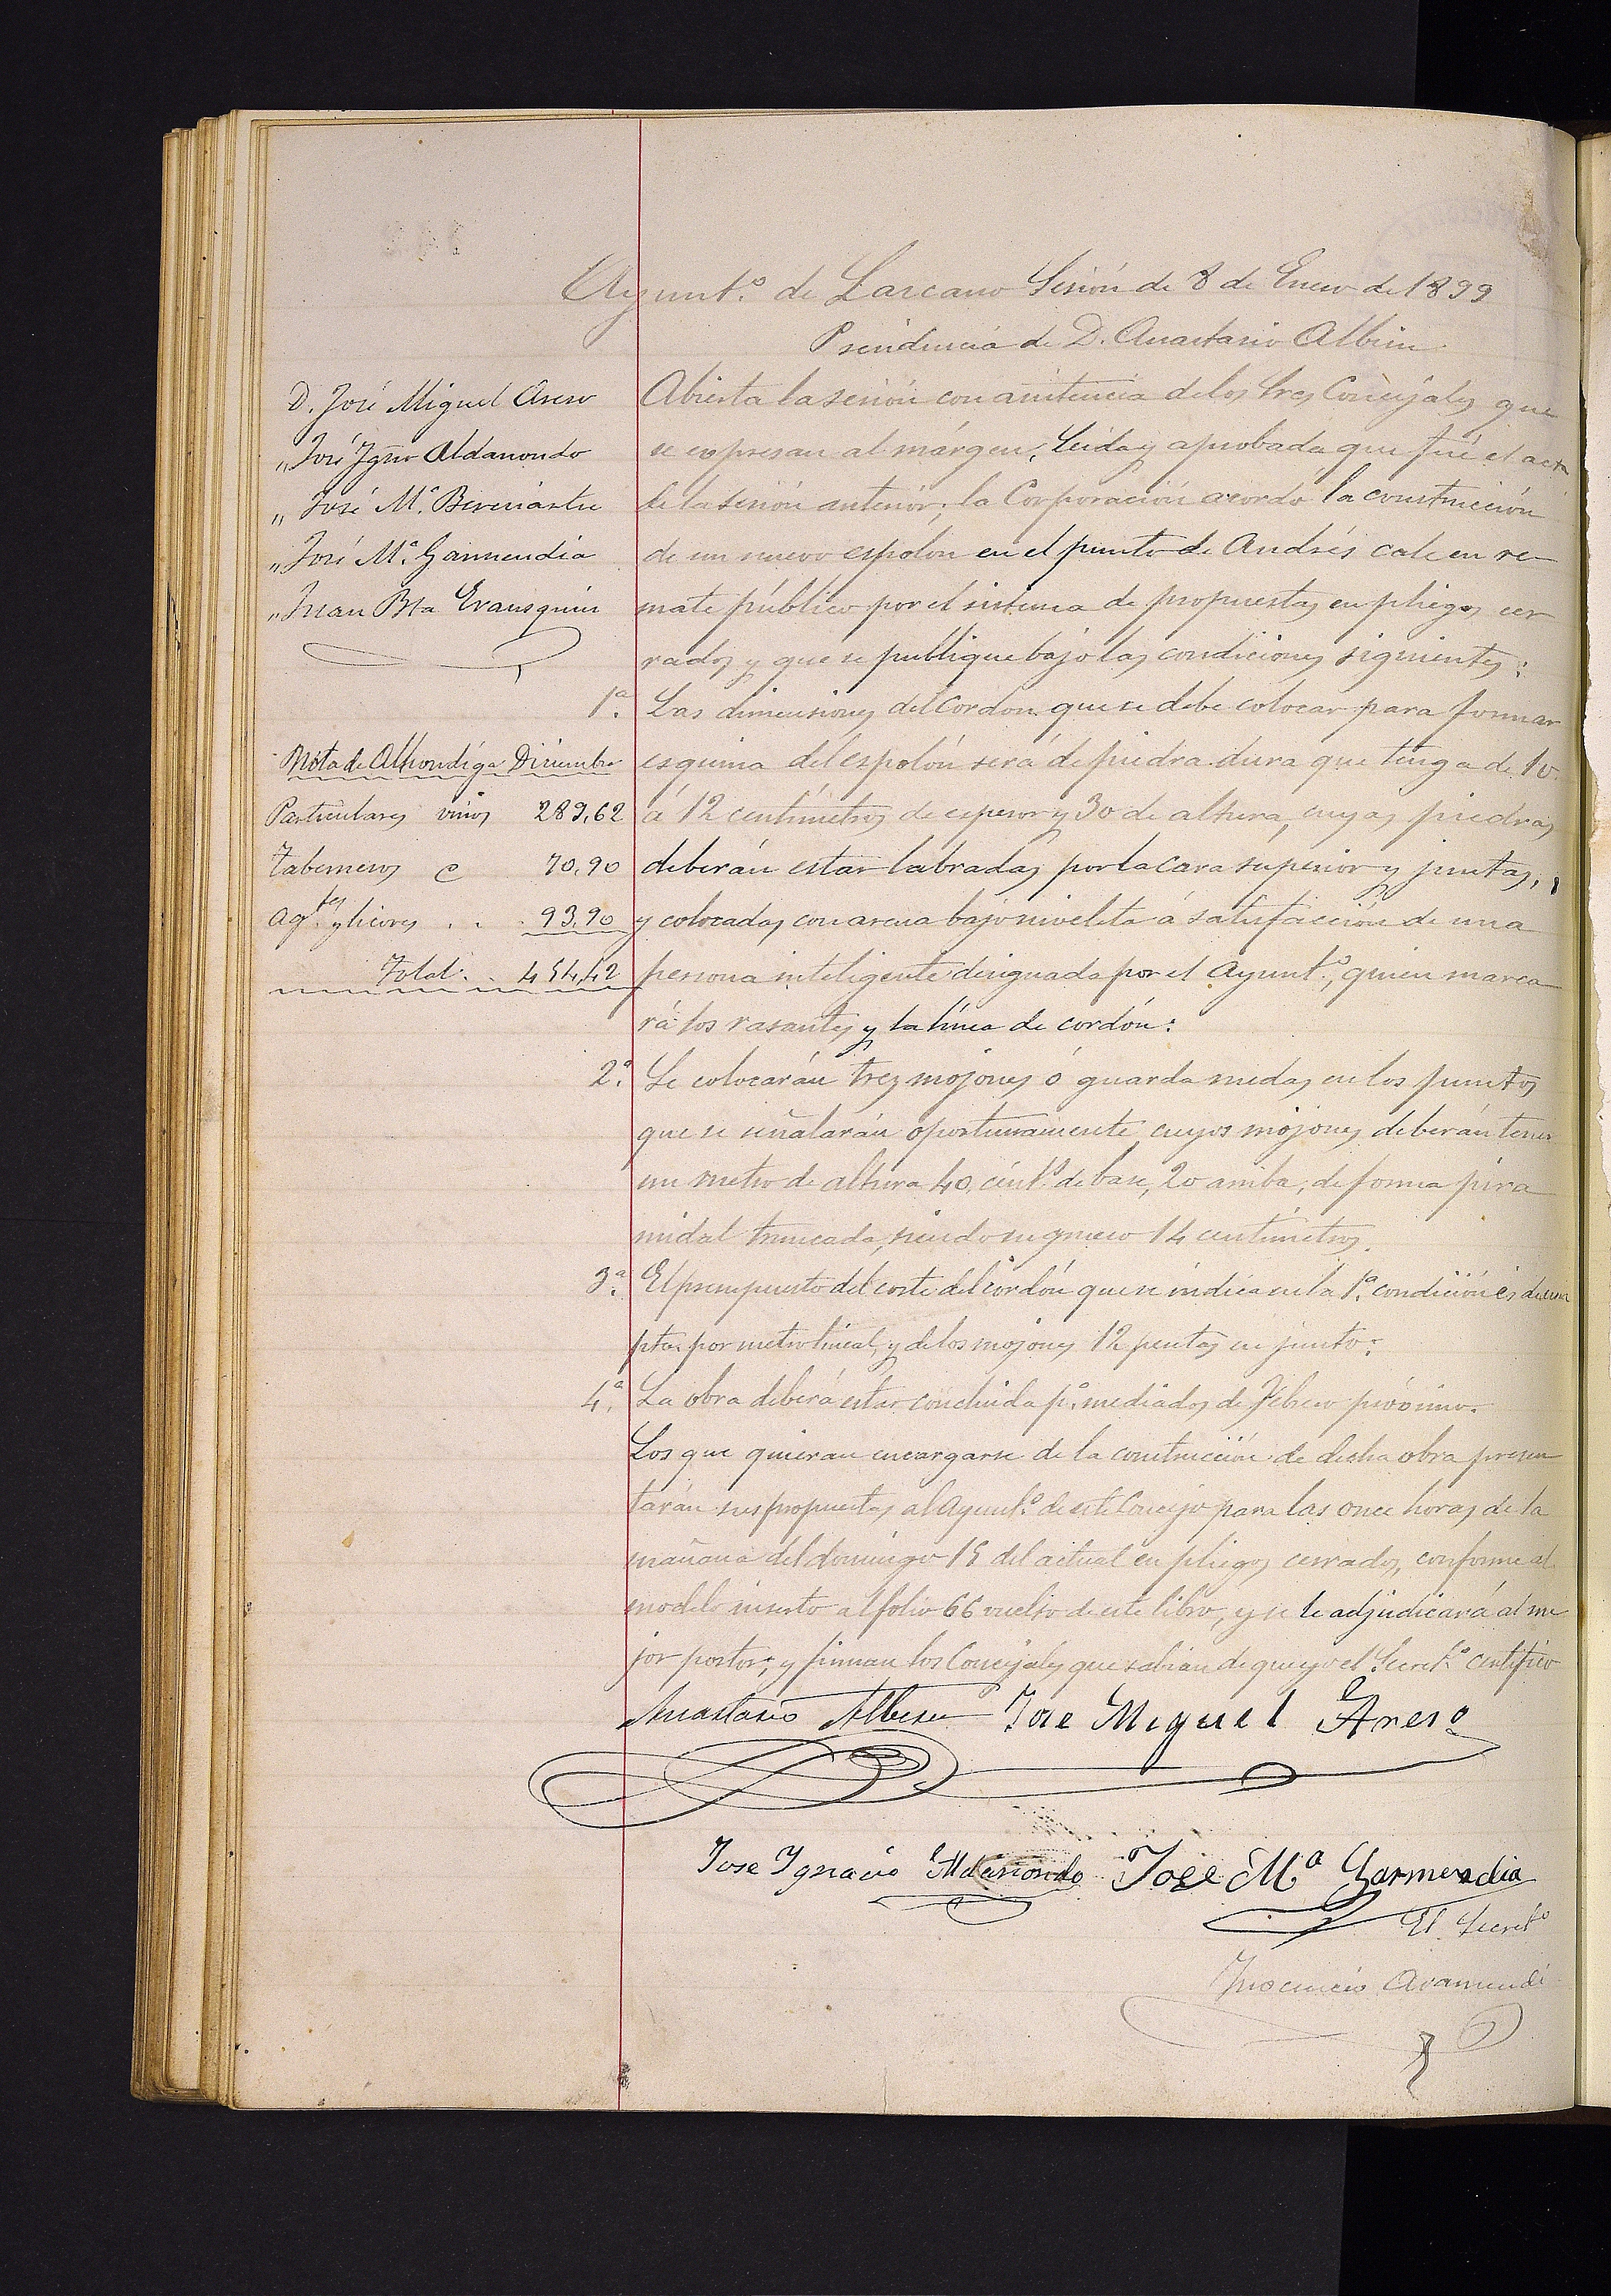 Ayunt.º de Lazcano Sesión de 8 de Enero de 1899
Presidencia de D. Anastasio Albisu
D. José Miguel Areso
„ José Ygn.º Aldanondo
„ José M.ª Bereciartu
„ José M.ª Garmendia
„ Juan Bta Erausquin
Abierta la sesión con asistencia de los tres Concejales que
se expresan al márgen, leida y aprobada que fué el acta
de la sesión anterior; la Corporación acordó la construcción
de un nuevo espolón en el punto de Andrés cale en re-
mate público por el sistema de propuestas en pliegos cer
rados y que se publique bajo las condiciones siguientes:
1ª. Las dimensiones del Cordon que se debe colocar para formar
esquina del espolón será de piedra dura que tenga de 10
á 12 centímetros de espesor y 30 de altura, cuyas piedras
deberán estar labradas por la cara superior y juntas,
y colocadas con arena bajo niveleta á satisfacción de una
persona inteligente designada por el Ayunt.º, quien marca
rá los rasantes y la línea de cordón:
Nota de Alhondiga Diciembre
Particulares vinos 289,62
Taberneros 70,90
Ag.tes y licores . . 93,90
Total. . 454,42
2ª. Se colocarán tres mojones ó guarda ruedas en los puntos
que se señalarán oportunamente, cuyos mojones deberán tener
un metro de altura 40 cent.s de base, 20 arriba, de forma pira
midal truncada, siendo su grueso 14 centímetros.
3ª. El presupuesto del coste del cordón que se indica en la 1ª. condición es de una
pta. por metro lineal, y de los mojones 12 pesetas en junto:
4ª. La obra deberá estar concluida p.ª mediados de Febrero próximo.
Los que quieran encargarse de la construcción de dicha obra presen
tarán sus propuestas al Ayunt.º de este Concejo para las once horas de la
mañana del domingo 15 del actual en pliegos cerrados, conforme al
modelo inserto al folio 66 vuelto de este libro, y se le adjudicará al me
jor postor; y firman los Concejales que sabian de que yo el Secret.º certifico
Anastasio Albisu José Miguel Areso
Jose Ygnacio Aldanondo José Mª Garmendia
El Secretº
Ynocencio Aramendi